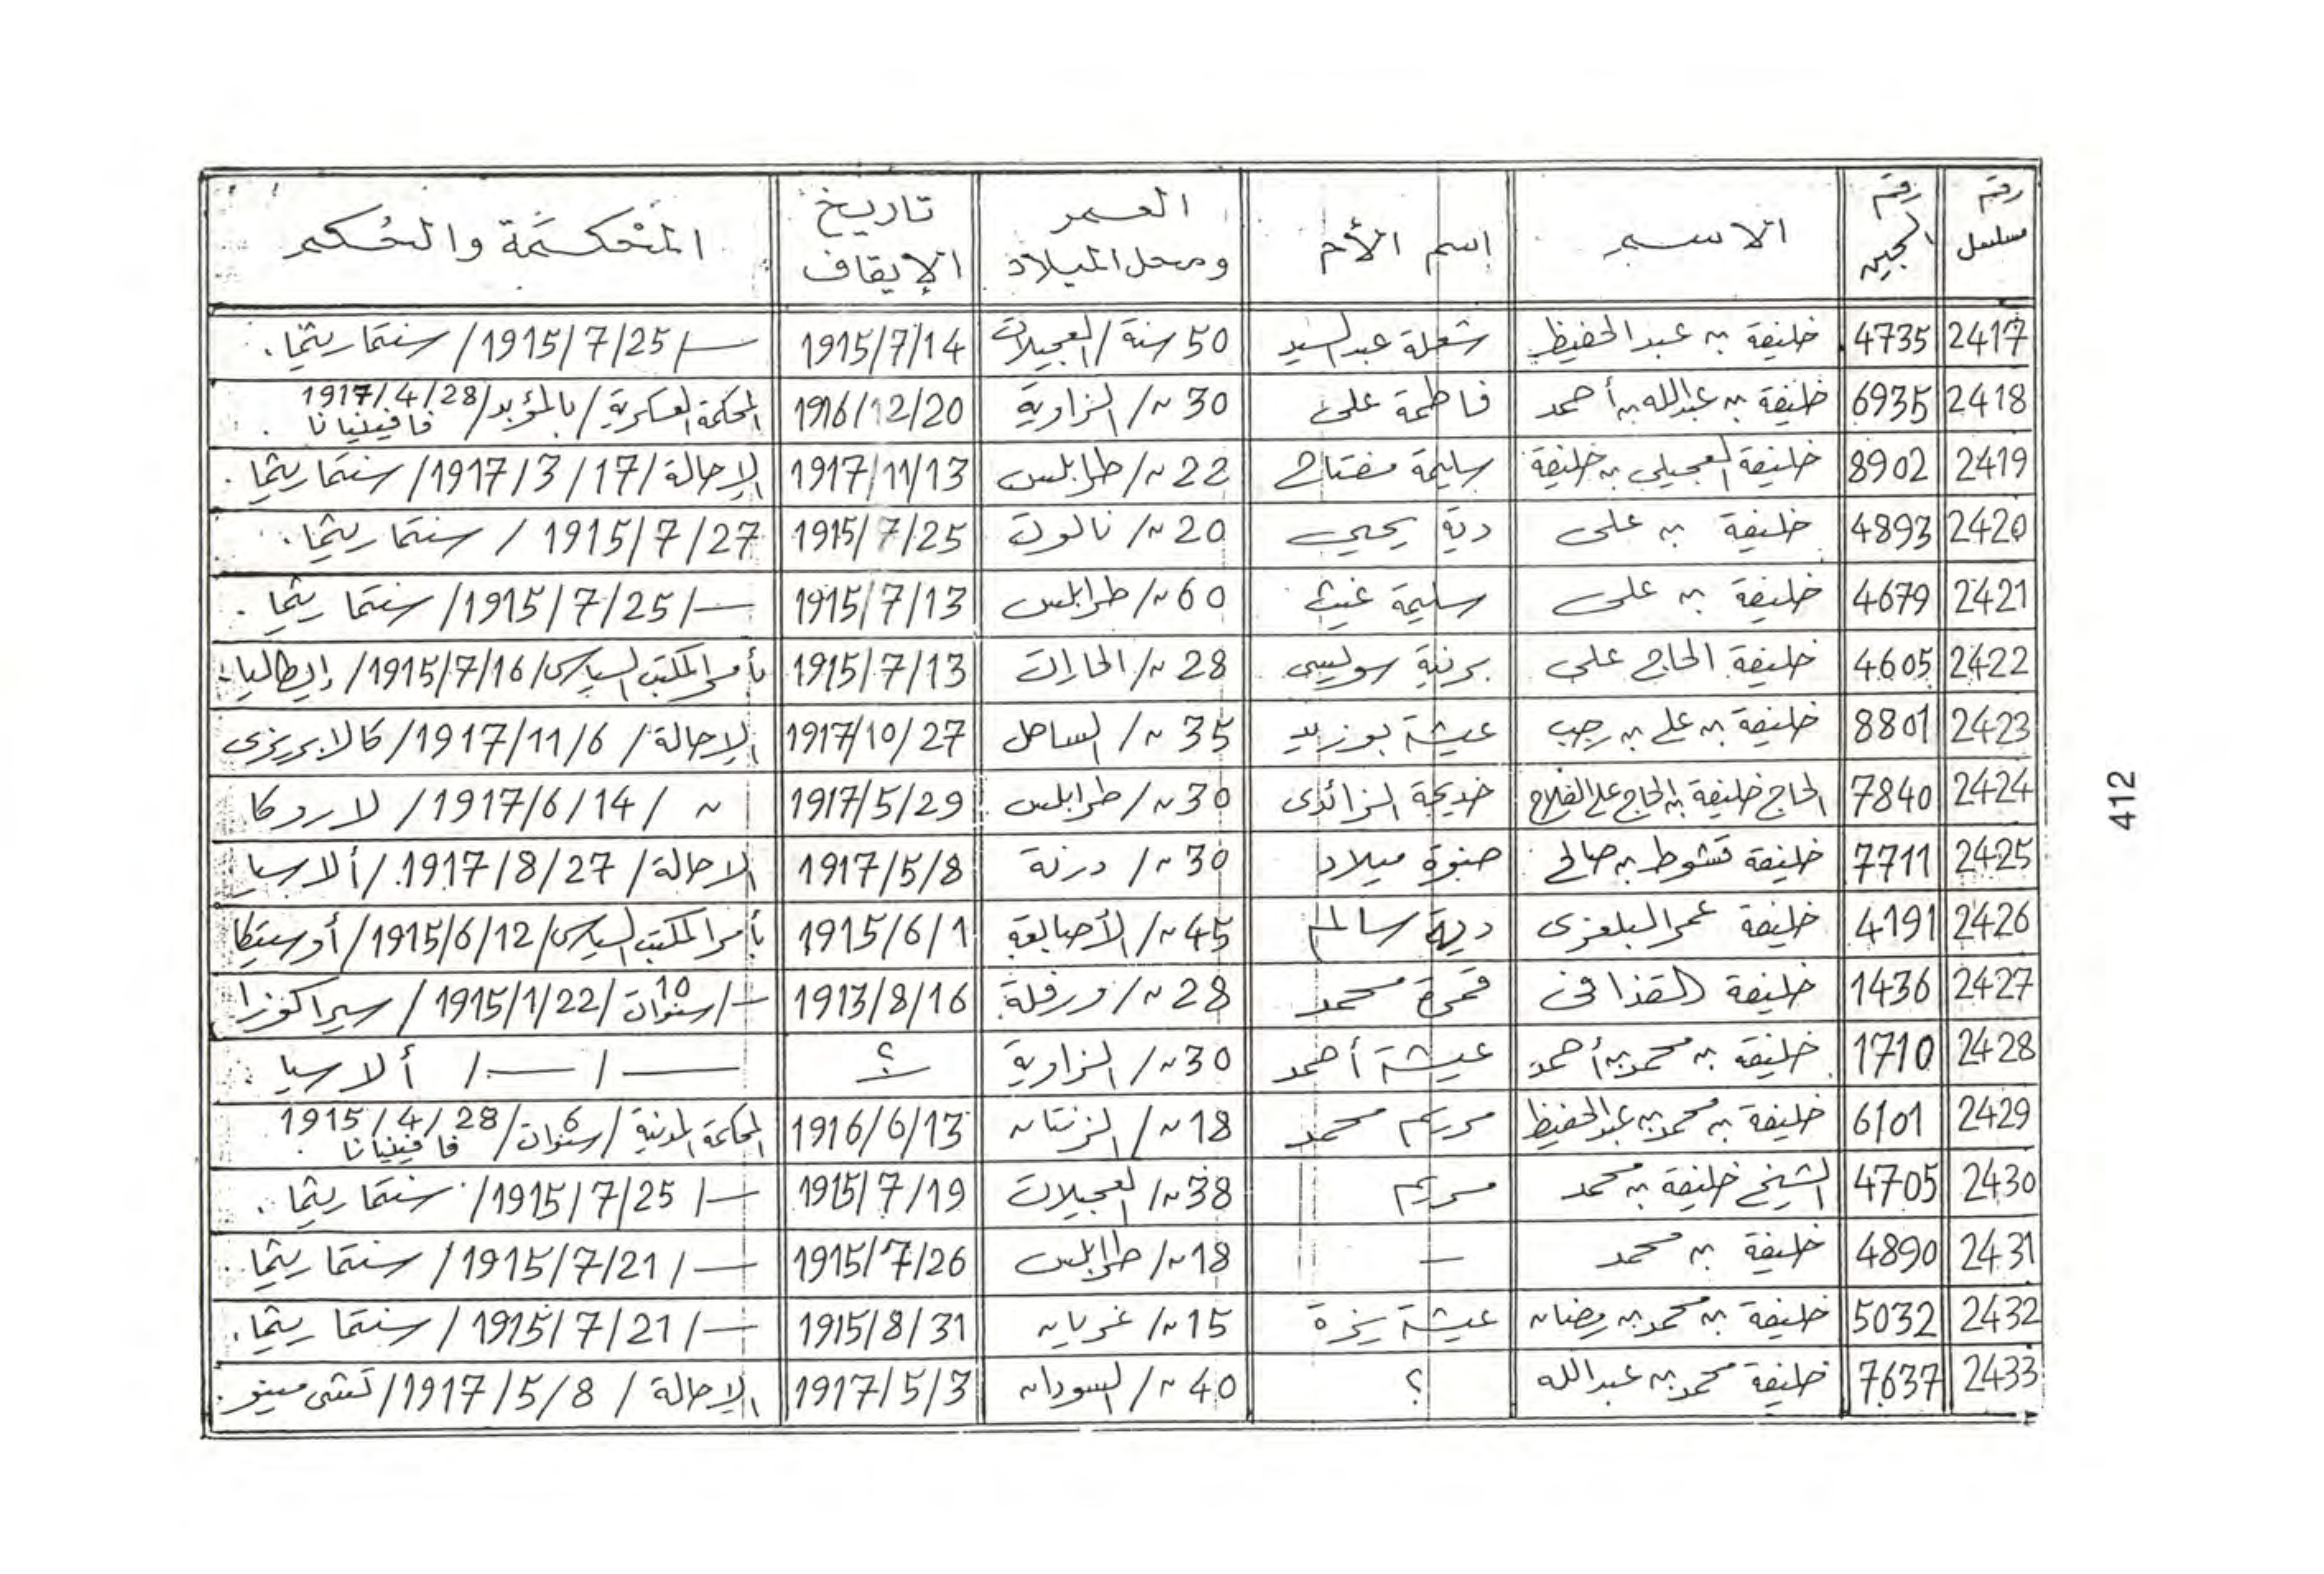 رقم مسلسل | رقم السجين | الاسم | إسم الأم | العمر ومحل الميلاد | تاريخ الإيقاف | المحكمة والحكم
2417 | 4735 | خليفة بن عبد الحفيظ | شعلة عبد السيد | 50 سنة / العجيلات | 1915/7/14 | — / 1915/7/25 / سنتماريتما.
2418 | 6935 | خليفة بن عبدالله بن أحمد | فاطمة على | 30 〃 / الزاوية | 1916/12/20 | المحكمة العسكرية / بالمؤبد / 1917/4/28 فافينيانا.
2419 | 8902 | خليفة العجيلي بن خليفة | سليمة مفتاح | 22 〃 / طرابلس | 1917/11/13 | الإحالة / 1917/3/17 / سنتماريتما.
2420 | 4893 | خليفة بن على | دية يحيي | 20 〃 / نالوت | 1915/7/25 | 1915/7/27 / سنتماريتما.
2421 | 4679 | خليفة بن على | سليمة غيث | 60 〃 / طرابلس | 1915/7/13 | — / 1915/7/25 / سنتماريتما.
2422 | 4605 | خليفة الحاج على | برنية سويسى | 28 〃 / الحارات | 1915/7/13 | بأمر المكتب السياسى / 1915/7/16 / إيطاليا.
2423 | 8801 | خليفة بن على بن رجب | عيشة بوزيد | 35 〃 / الساحل | 1917/10/27 | الإحالة / 1917/11/6 / كالابريزى
2424 | 7840 | الحاج خليفة بن الحاج على الفلاح | خديجة الزائدى | 30 〃 / طرابلس | 1917/5/29 | 〃 / 1917/6/14 / لاروكا
2425 | 7711 | خليفة قشوط بن صالح | صنوة ميلاد | 30 〃 / درنة | 1917/5/8 | الاحالة / 1917/8/27 / ألاسيا
2426 | 4191 | خليفة عمر البلعزى | دية سالم | 45 〃 / الأصابعة | 1915/6/1 | بأمر المكتب السياسى / 1915/6/12 / أوستيكا
2427 | 1436 | خليفة القذافى | قمرة محمد | 28 〃 / ورفلة | 1913/8/16 | — / 10 سنوات / 1915/1/22 / سيراكوزا
2428 | 1710 | خليفة بن محمد بن أحمد | عيشة أحمد | 30 〃 / الزاوية | ؟ | — / — / ألاسيا
2429 | 6101 | خليفة بن محمد بن عبد الحفيظ | مريم محمد | 18 〃 / الزنتان | 1916/6/13 | المحكمة المدنية / 6 سنوات / 1915/4/28 فافينيانا.
2430 | 4705 | الشيخ خليفة بن محمد | مريم | 38 〃 / العجيلات | 1915/7/19 | — / 1915/7/25 / سنتماريتما.
2431 | 4890 | خليفة بن محمد | — | 18 〃 / طرابلس | 1915/7/26 | — / 1915/7/21 / سنتماريتما.
2432 | 5032 | خليفة بن محمد بن رمضان | عيشة يزة | 15 〃 / غريان | 1915/8/31 | — / 1915/7/21 / سنتماريتما.
2433 | 7637 | خليفة محمد بن عبدالله | ؟ | 40 〃 / السودان | 1917/5/3 | الإحالة / 1917/5/8 / تشى مينو.
412